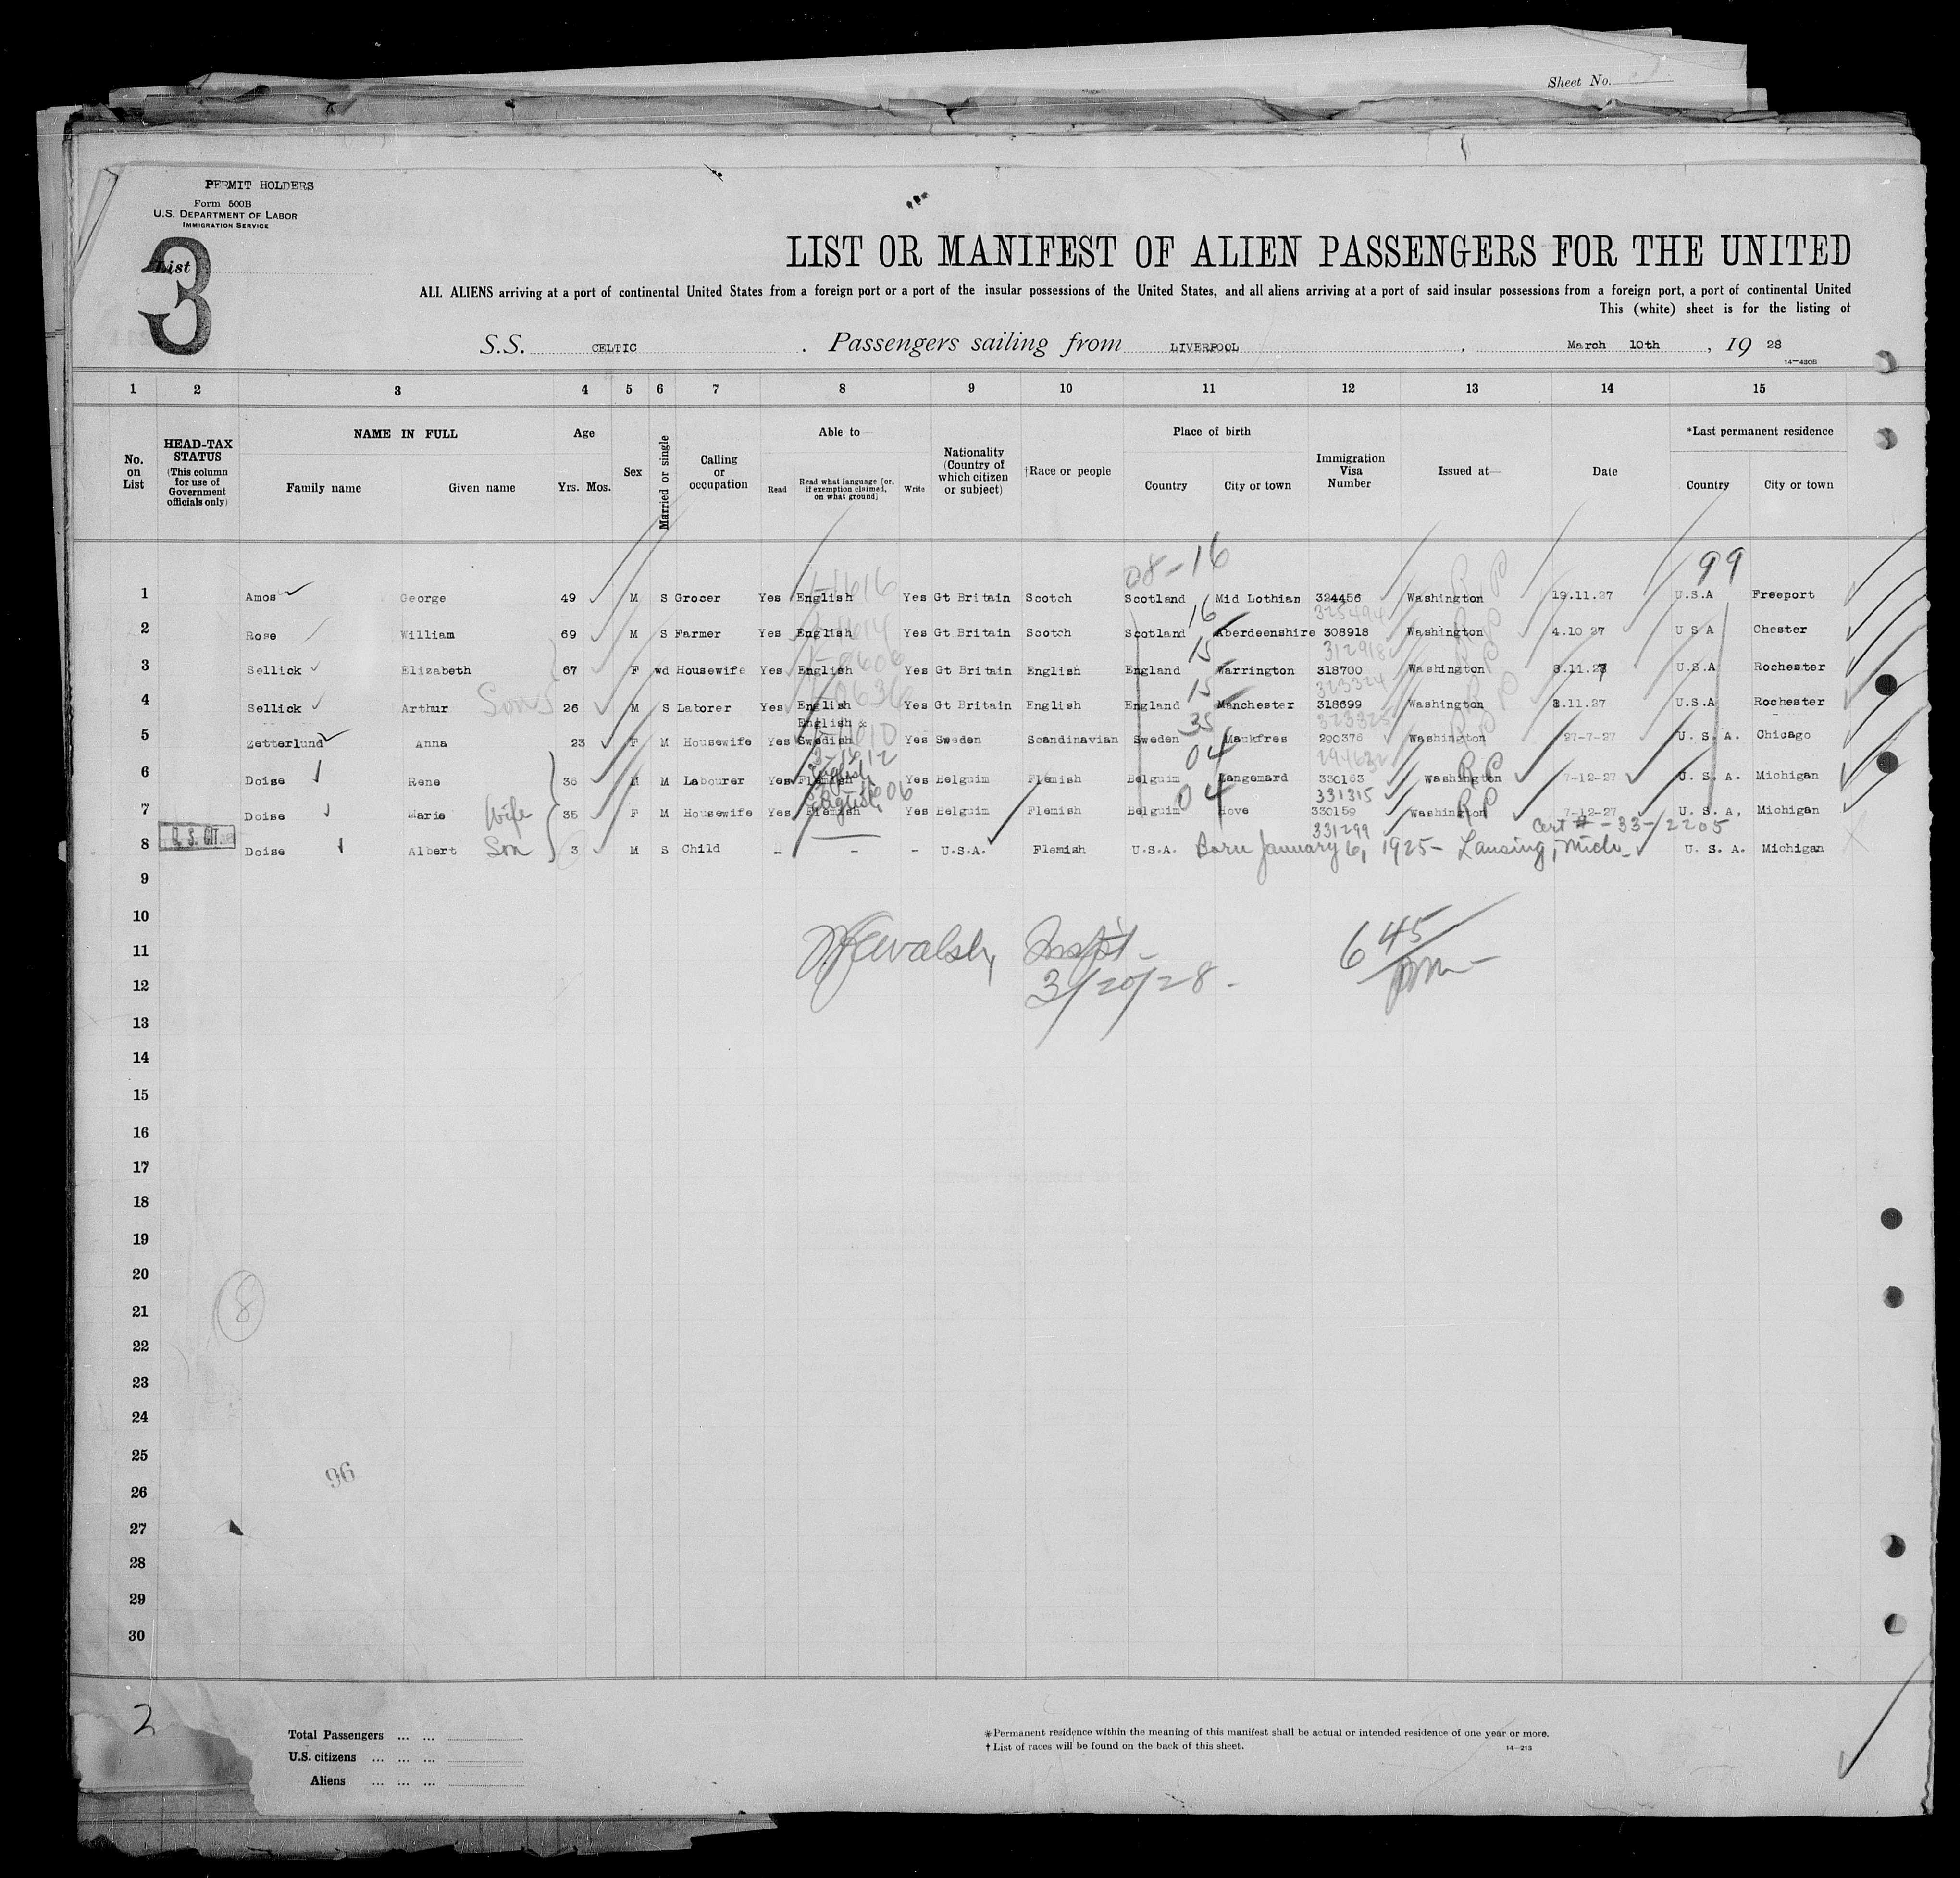 Sheet No.
PERMIT HOLDERS
Form 500B
U.S. DEPARTMENT OF LABOR
IMMIGRATION SERVICE
List
3
LIST OR MANIFEST OF ALIEN PASSENGERS FOR THE UNITED
ALL ALIENS arriving at a port of continental United States from a foreign port or a port of the insular possessions of the United States, and all aliens arriving at a port of said insular possessions from a foreign port, a port of continental United
This (white) sheet is for the listing of
S.S. CELTIC . Passengers sailing from LIVERPOOL , March 10th , 19 28
14-430B
1 2 3 4 5 6 7 8 9 10 11 12 13 14 15
No. on List
HEAD-TAX STATUS (This column for use of Government officials only)
NAME IN FULL
Family name Given name
Age
Yrs. Mos.
Sex
Married or single
Calling or occupation
Able to
Read
Read what language [or, if exemption claimed, on what ground]
Write
Nationality (Country of which citizen or subject)
†Race or people
Place of birth
Country City or town
Immigration Visa Number
Issued at—
Date
*Last permanent residence
Country City or town
08-16 99
1 Amos George 49 M S Grocer Yes English Yes Gt Britain Scotch Scotland Mid Lothian 324456 Washington 19.11.27 U.S.A Freeport
16 325494
2 Rose William 69 M S Farmer Yes English Yes Gt Britain Scotch Scotland Aberdeenshire 308918 Washington 4.10 27 U S A Chester
15 312918
3 Sellick Elizabeth 67 F wd Housewife Yes English Yes Gt Britain English England Warrington 318700 Washington 8.11.27 U.S.A Rochester
15 323324
4 Sellick Arthur Son 26 M S Laborer Yes English Yes Gt Britain English England Manchester 318699 Washington 8.11.27 U.S.A Rochester
35 323325
5 Zetterlund Anna 23 F M Housewife Yes English & Swedish Yes Sweden Scandinavian Sweden Mankfres 290376 Washington 27-7-27 U. S. A. Chicago
04 294632
6 Doise Rene 36 M M Labourer Yes English Flemish Yes Belguim Flemish Belguim Langemard 330163 Washington RP 7-12-27 U. S. A. Michigan
04 331315
7 Doise Marie Wife 35 F M Housewife Yes English Flemish Yes Belguim Flemish Belguim Hove 330159 Washington RP 7-12-27 U. S. A, Michigan
331299 Cert # -33-/2205
8 U. S. CIT. Doise Albert Son 3 M S Child - - - U.S.A. Flemish U.S.A. Born January 6, 1925- Lansing, Mich- U. S. A. Michigan
9
10
11 Walsh, Inspt- 645
12 3/20/28-
13
14
15
16
17
18
19
20
21 8
22
23
24
25
26 96
27
28
29
30
2
Total Passengers ... ...
U.S. citizens ... ... ...
Aliens ... ... ...
*Permanent residence within the meaning of this manifest shall be actual or intended residence of one year or more.
† List of races will be found on the back of this sheet.
14-213